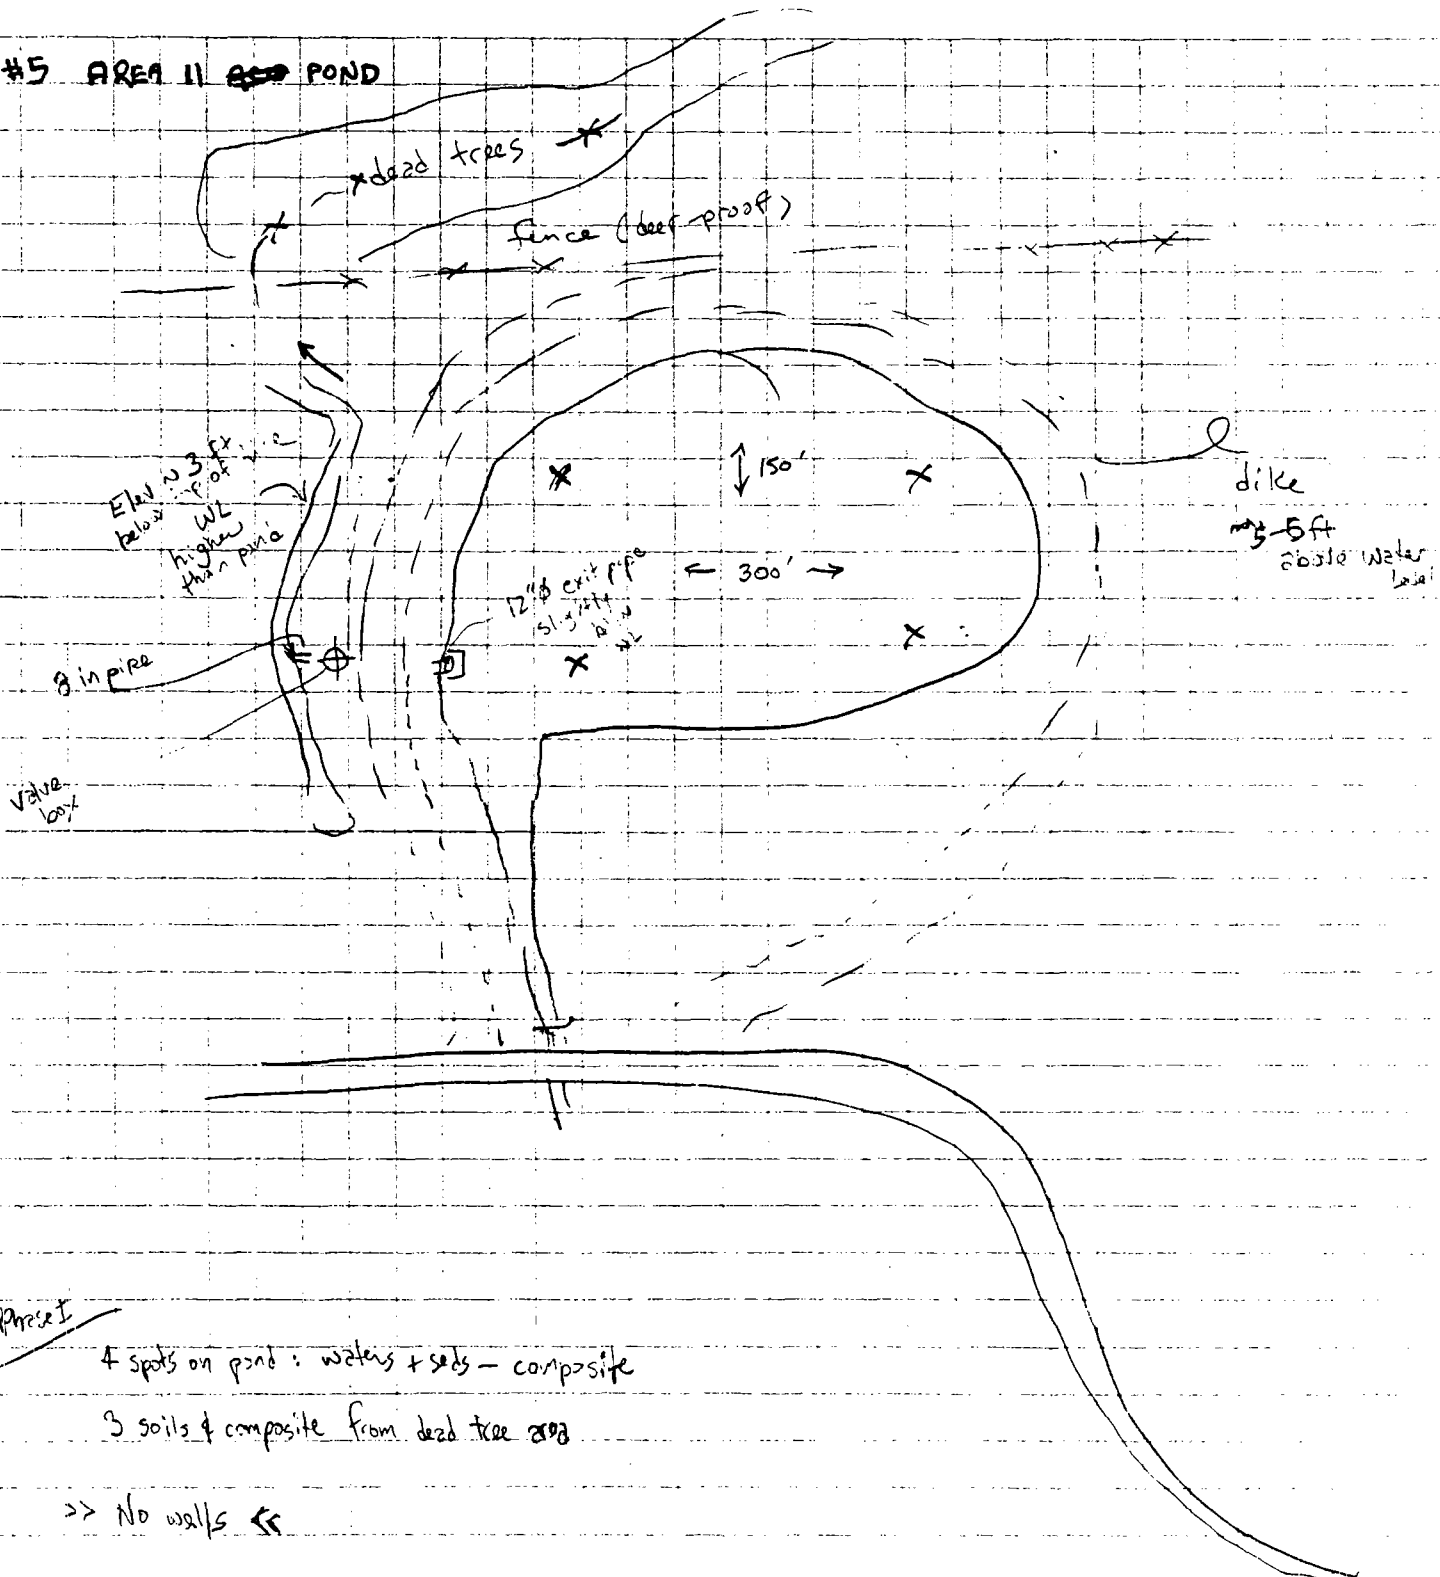 #5 AREA 11 POND
dead trees
fence (deer-proof)
Elev ~ 3 ft
below top of
WL
higher
than pond
150'
300'
12"ø exit pipe
slightly
WL
dike
5 ft
above water
level
8 in pipe
valve
box
Phase I
4 spots on pond : waters + seds - composite
3 soils & composite from dead tree area
>> No wells <<